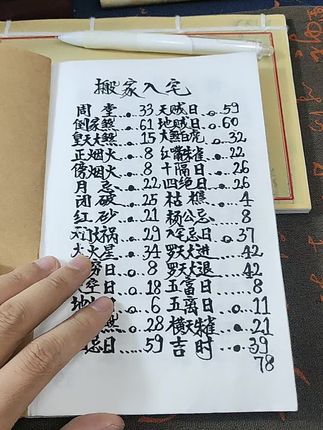 搬家入宅
周堂……33 天贼日…59
倒家煞…61 地贼日…60
大煞…15 大煞白虎…32
正烟火…8 红嘴朱雀…22
傍烟火…8 十隔日…26
月忌…22 四绝日…26
团破…25 枯樵…4
红砂…21 杨公忌…8
祸…29 忌日…37
火星…34 罗天大进…42
日…8 罗天大退…42
日…18 五富日…8
地…6 五离日…11
煞…28 横天朱雀…21
忌日…59 吉时…39
78